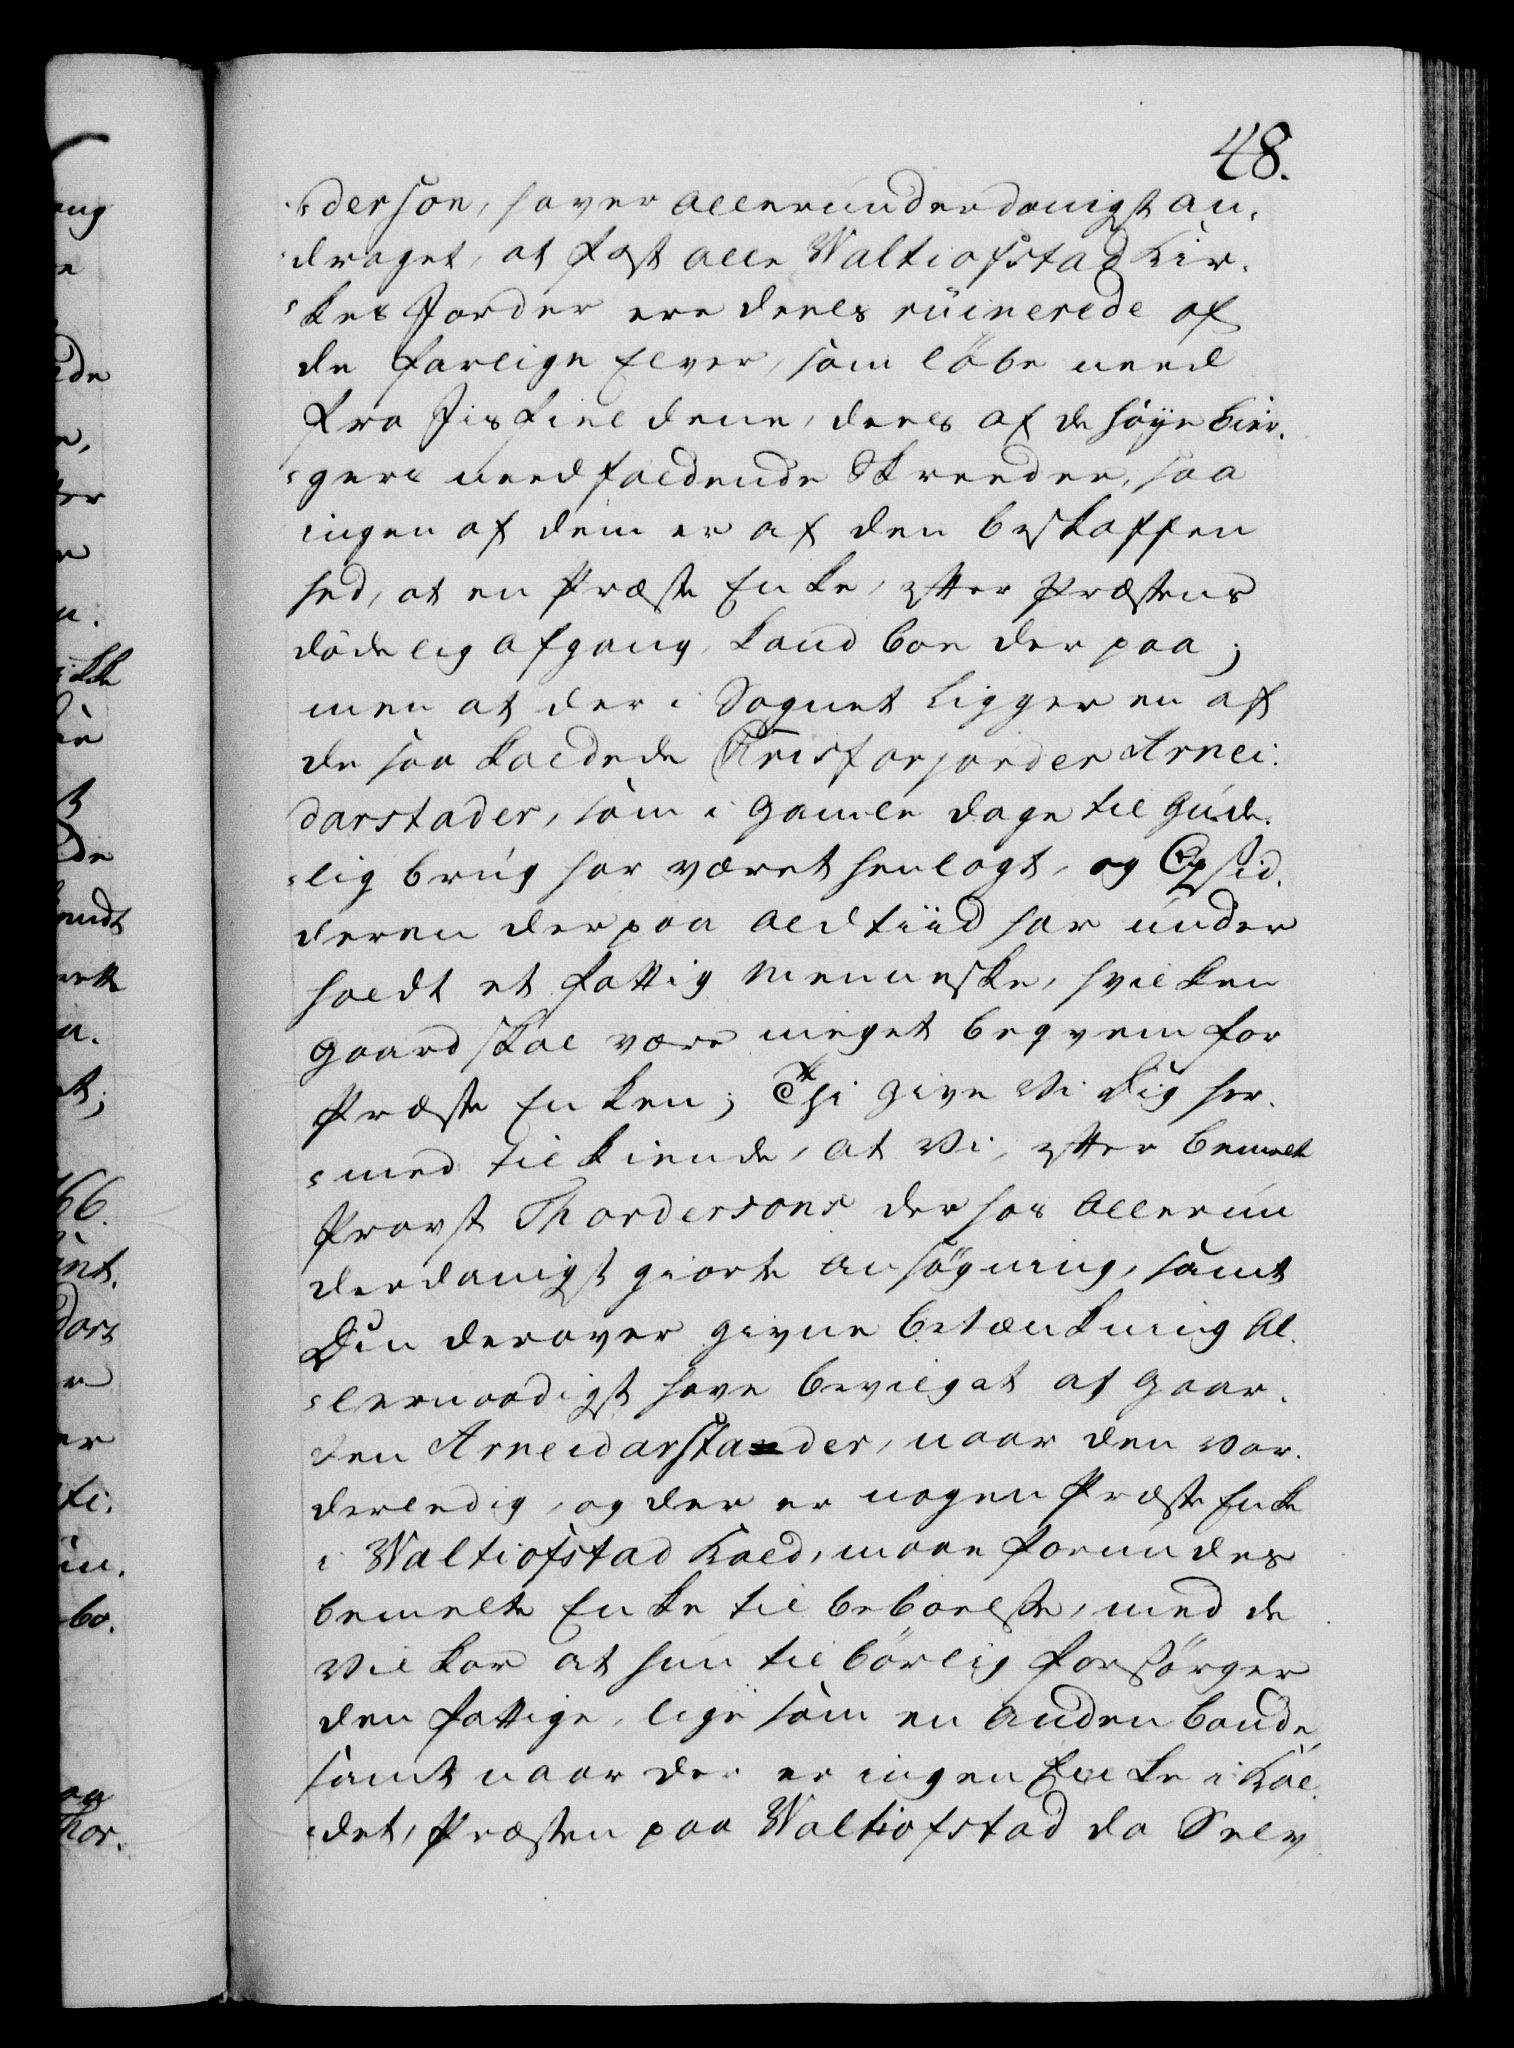 48.
derson, haver allerunderdanigst an-
draget, at fast alle Waltiofstad Kir-
kes Jorder ere deels ruinerede af
de farlige Elver, som løbe need
fra Jisfieldene, deels af de høye bier-
gers needfaldende Skreeder, saa
ingen af dem er af den beskaffen
hed, at en Præste Enke, efter Præstens
dödelig afgang, kand boe der paa;
men at der i Sognet ligger en af
de saa kaldede Kristfarjorder Arnei-
darstader, som i gamle dage til Gude-
lig brug har været henlagt, og Opsid-
deren derpaa altiid har under
holdt et fattig Menneske, hvilken
gaard skal være meget beqvem for
Præste Enken; Thi give Vi Dig her-
med tilkiende, at Vi, efter bemelte
Provst Thordersons derhos allerun
derdanigst giorte ansøgning, samt
Din derover givne betænkning Al-
lernaadigst have bevilget at gaar-
den Arneidarstader, naar den vor-
der ledig, og der er nogen Præste Enke
i Waltiofstad Kald, maae forundes
bemelte Enke til beboelse, med de
Vilkor at hun tilbörlig forsörger
den fattige, lige som en anden bonde,
samt naar der er ingen Enke i Kal-
det, Præsten paa Waltiofstad da Selv